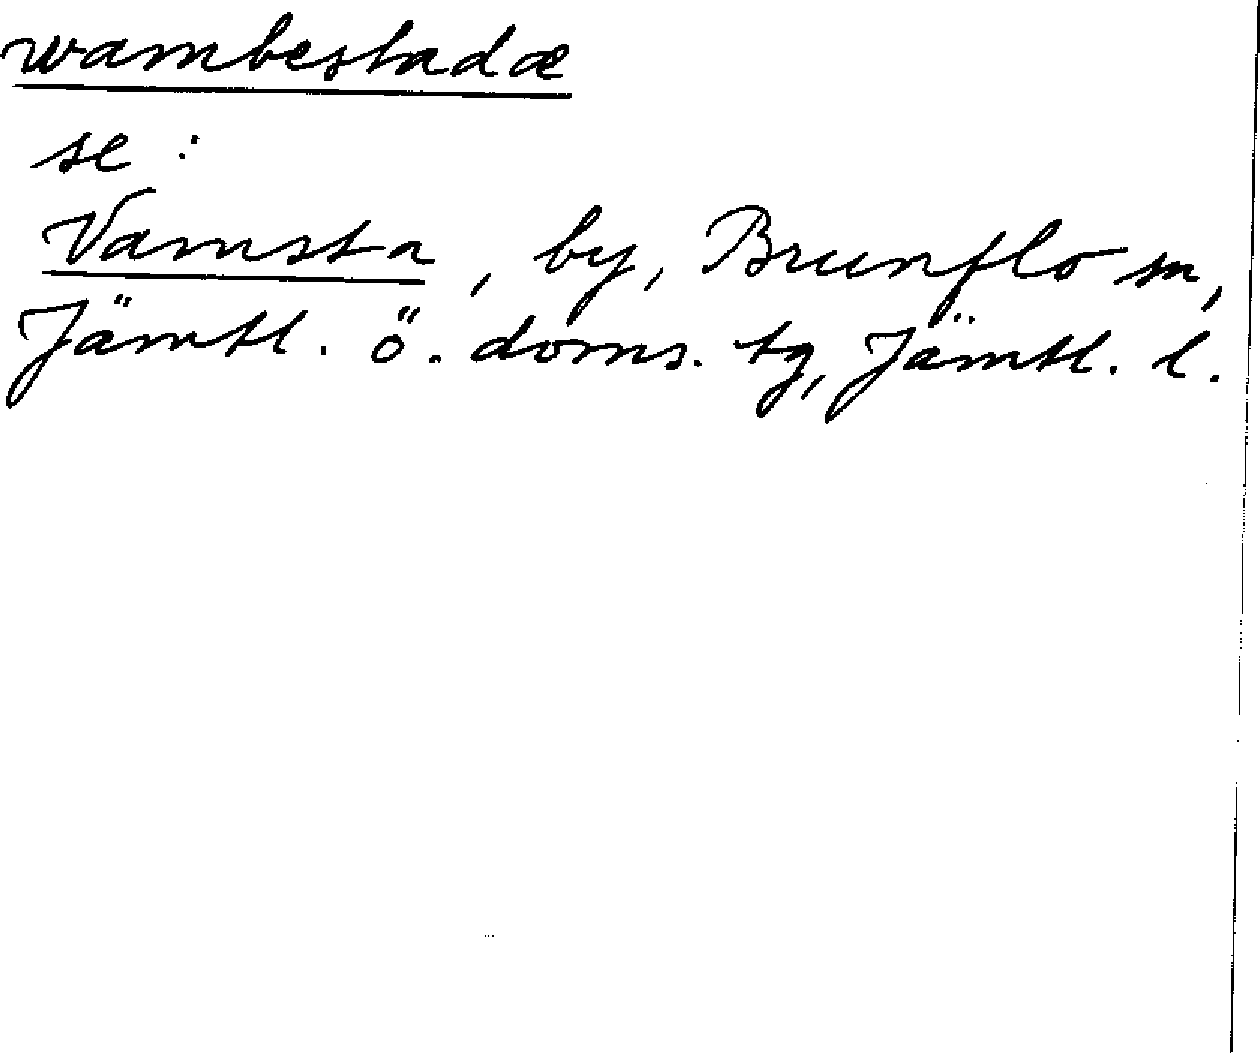 wambestadæ
se:
Vamsta, by, Brunflo sn,
Jämtl. ö. doms. tg, Jämtl. l.